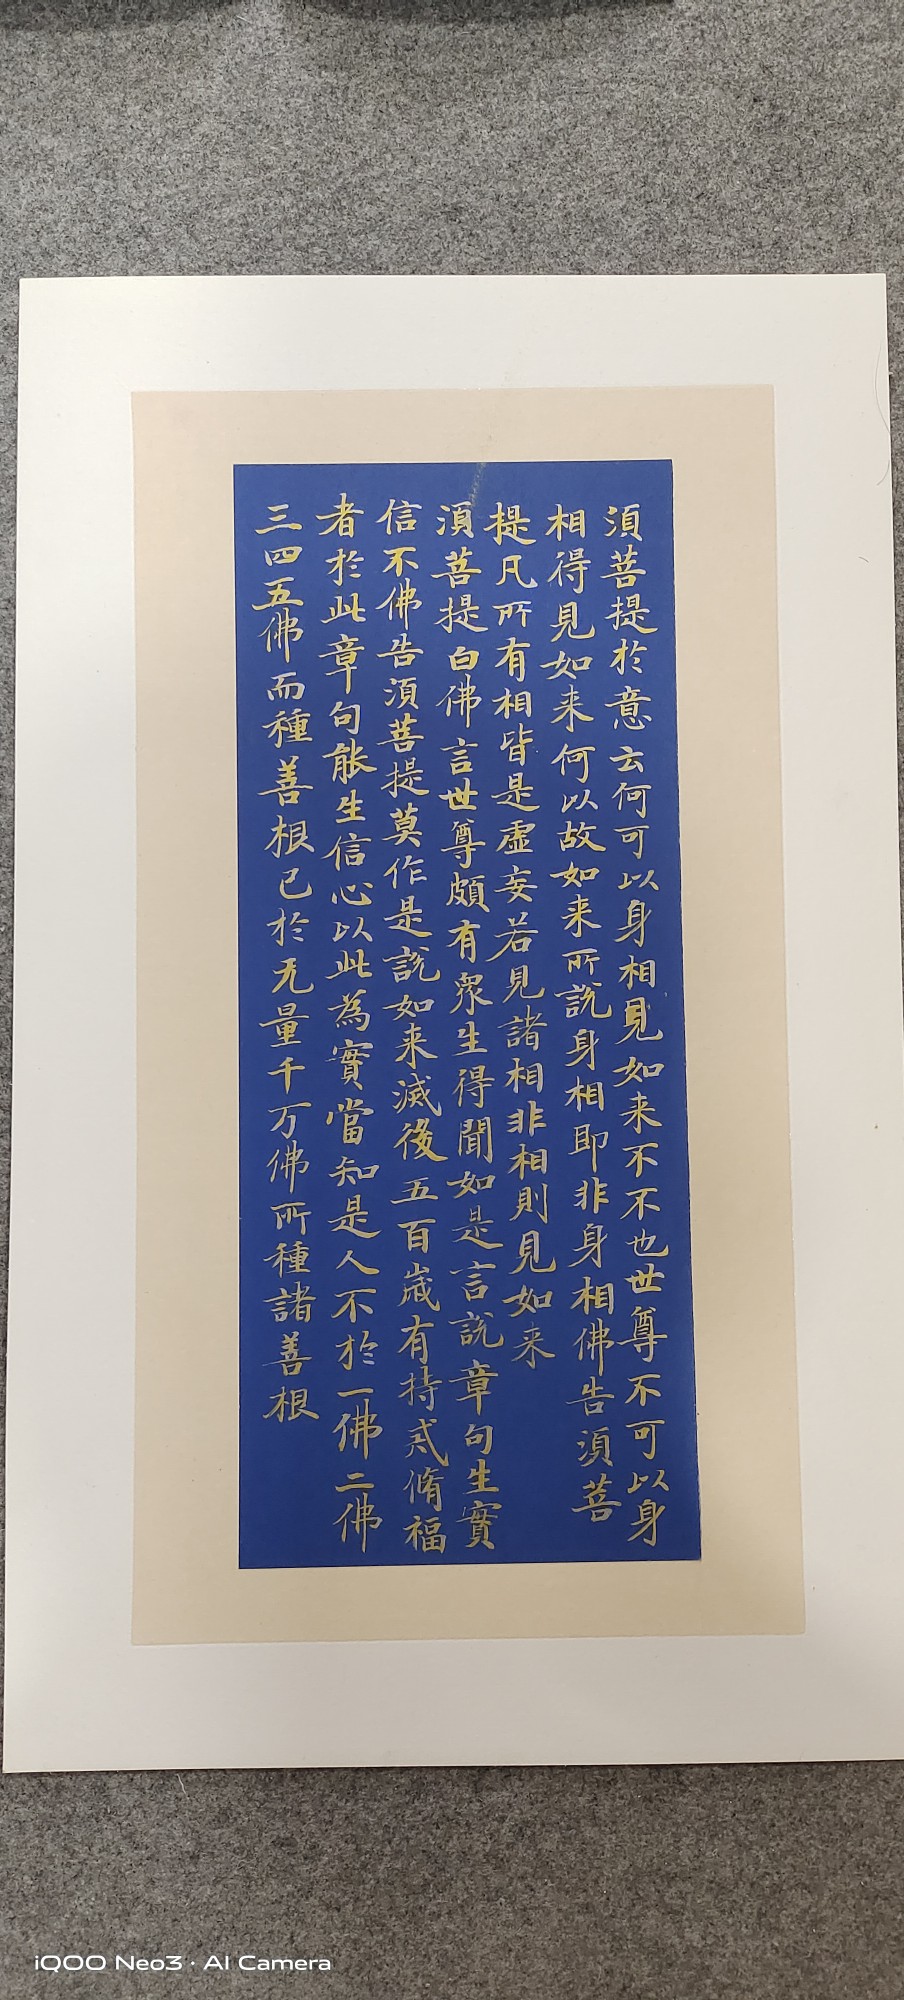 須菩提於意云何可以身相見如来不不也世尊不可以身
相得見如来何以故如来所説身相即非身相佛告須菩
提凡所有相皆是虛妄若見諸相非相則見如来
須菩提白佛言世尊頗有衆生得聞如是言説章句生實
信不佛告須菩提莫作是説如来滅後五百歳有持戒脩福
者於此章句能生信心以此為實當知是人不於一佛二佛
三四五佛而種善根已於无量千万佛所種諸善根
iQOO Neo3 · AI Camera